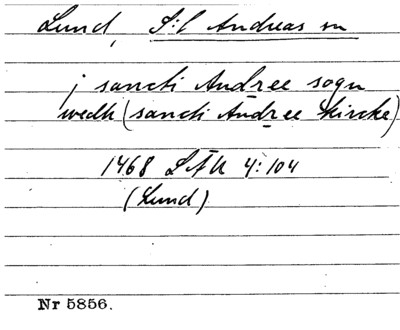 Lund, S:t Andreas sn
j sancti Andree sogn
wedh (sancti Andree kircke)
1468 LÄU 4:104
(Lund)
Nr 5856.